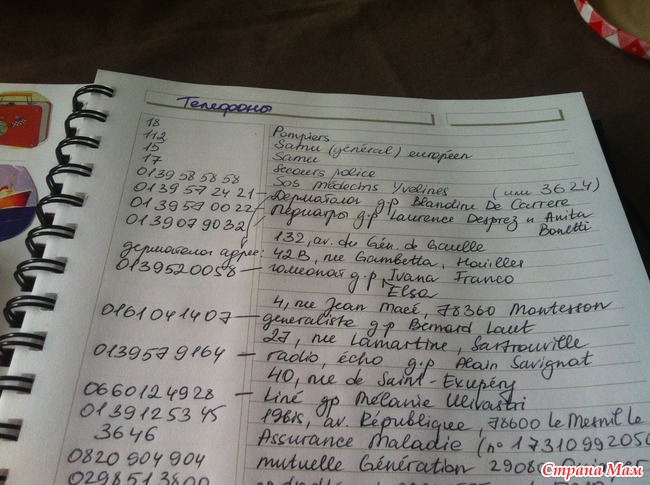 Телефоны
18 Pompiers
112 Samu (général) européen
15 Samu
17 Secours police
0139585858 Sos médecins Yvelines (или 3624)
0139572421 – Дерматолог д-р Blandine De Carrere
0139570022 – Педиатры д-р Laurence Desprez и Anita
0139079032 Bonetti
132, av. du Gén. de Gaulle
дерматолог адрес: 42B, rue Gambetta, Houilles
0139520058 – гомеопат д-р Ivana Franco
Elsa
4, rue Jean Macé, 78360 Montesson
0161041407 – généraliste д-р Bernard Laut
27, rue Lamartine, Sartrouville
0139579164 – radio, écho д-р Alain Savignat
40, rue de Saint-Exupéry
0660124928 – kiné др Mélanie
0139125345 19bis, av. République, 78600 Le Mesnil le
3646 Assurance Maladie (n° 173109920
0820904904 mutuelle Génération 2908
Страна Мам